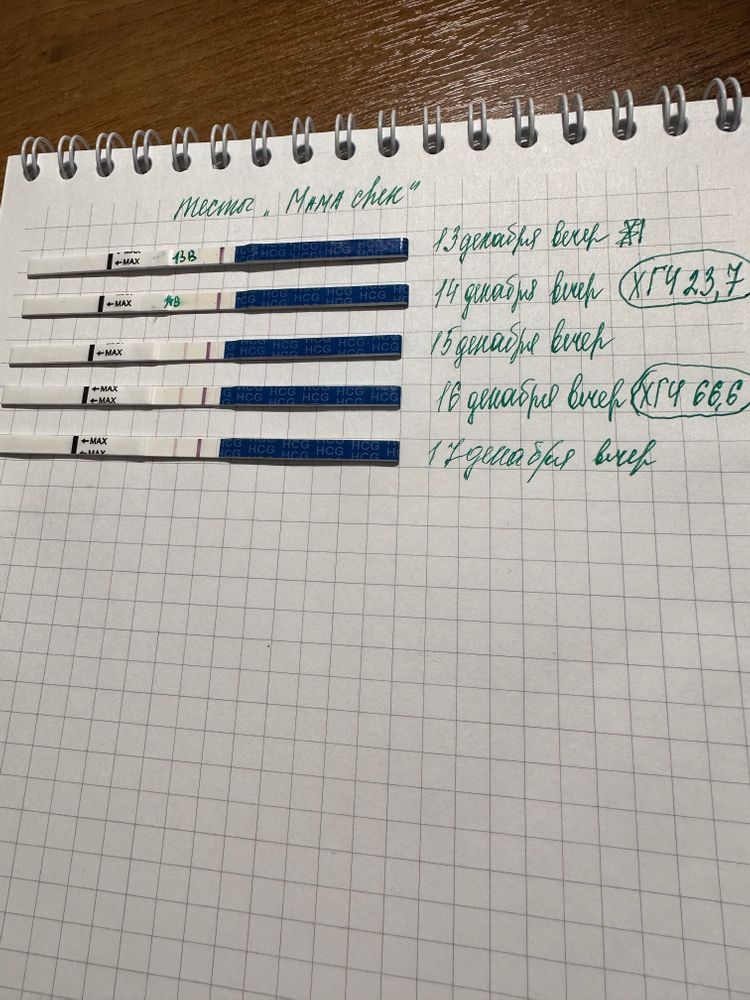 тесты „Мама чек"
←MAX 13В HCG HCG HCG HCG 13 декабря вечер
←MAX 14В HCG HCG HCG HCG 14 декабря вечер ХГЧ 23,7
←MAX HCG HCG HCG HCG 15 декабря вечер
←MAX ←MAX HCG HCG HCG HCG 16 декабря вечер ХГЧ 66,6
←MAX MAX HCG HCG HCG HCG 17 декабря вечер